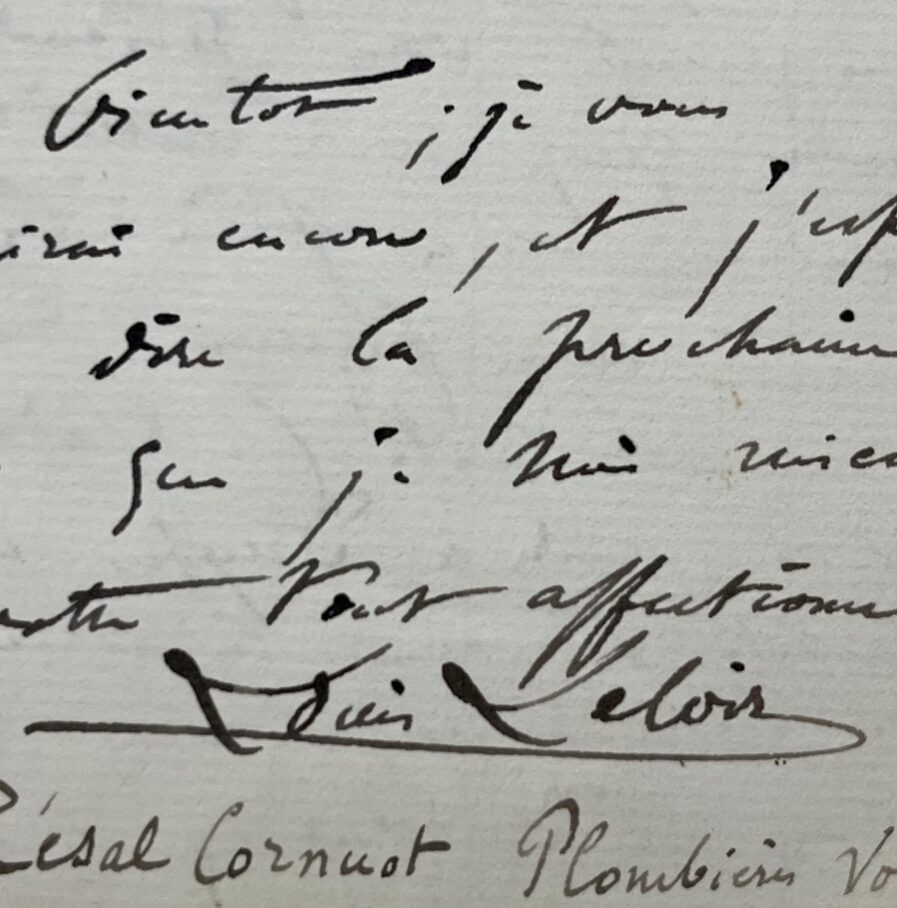 bientot ; je vous
irai encore, et j'esp
dire la prochain
que je suis mieu
Tout affectionn
Louis Leloir
Résal Cornuot Plombières Vo